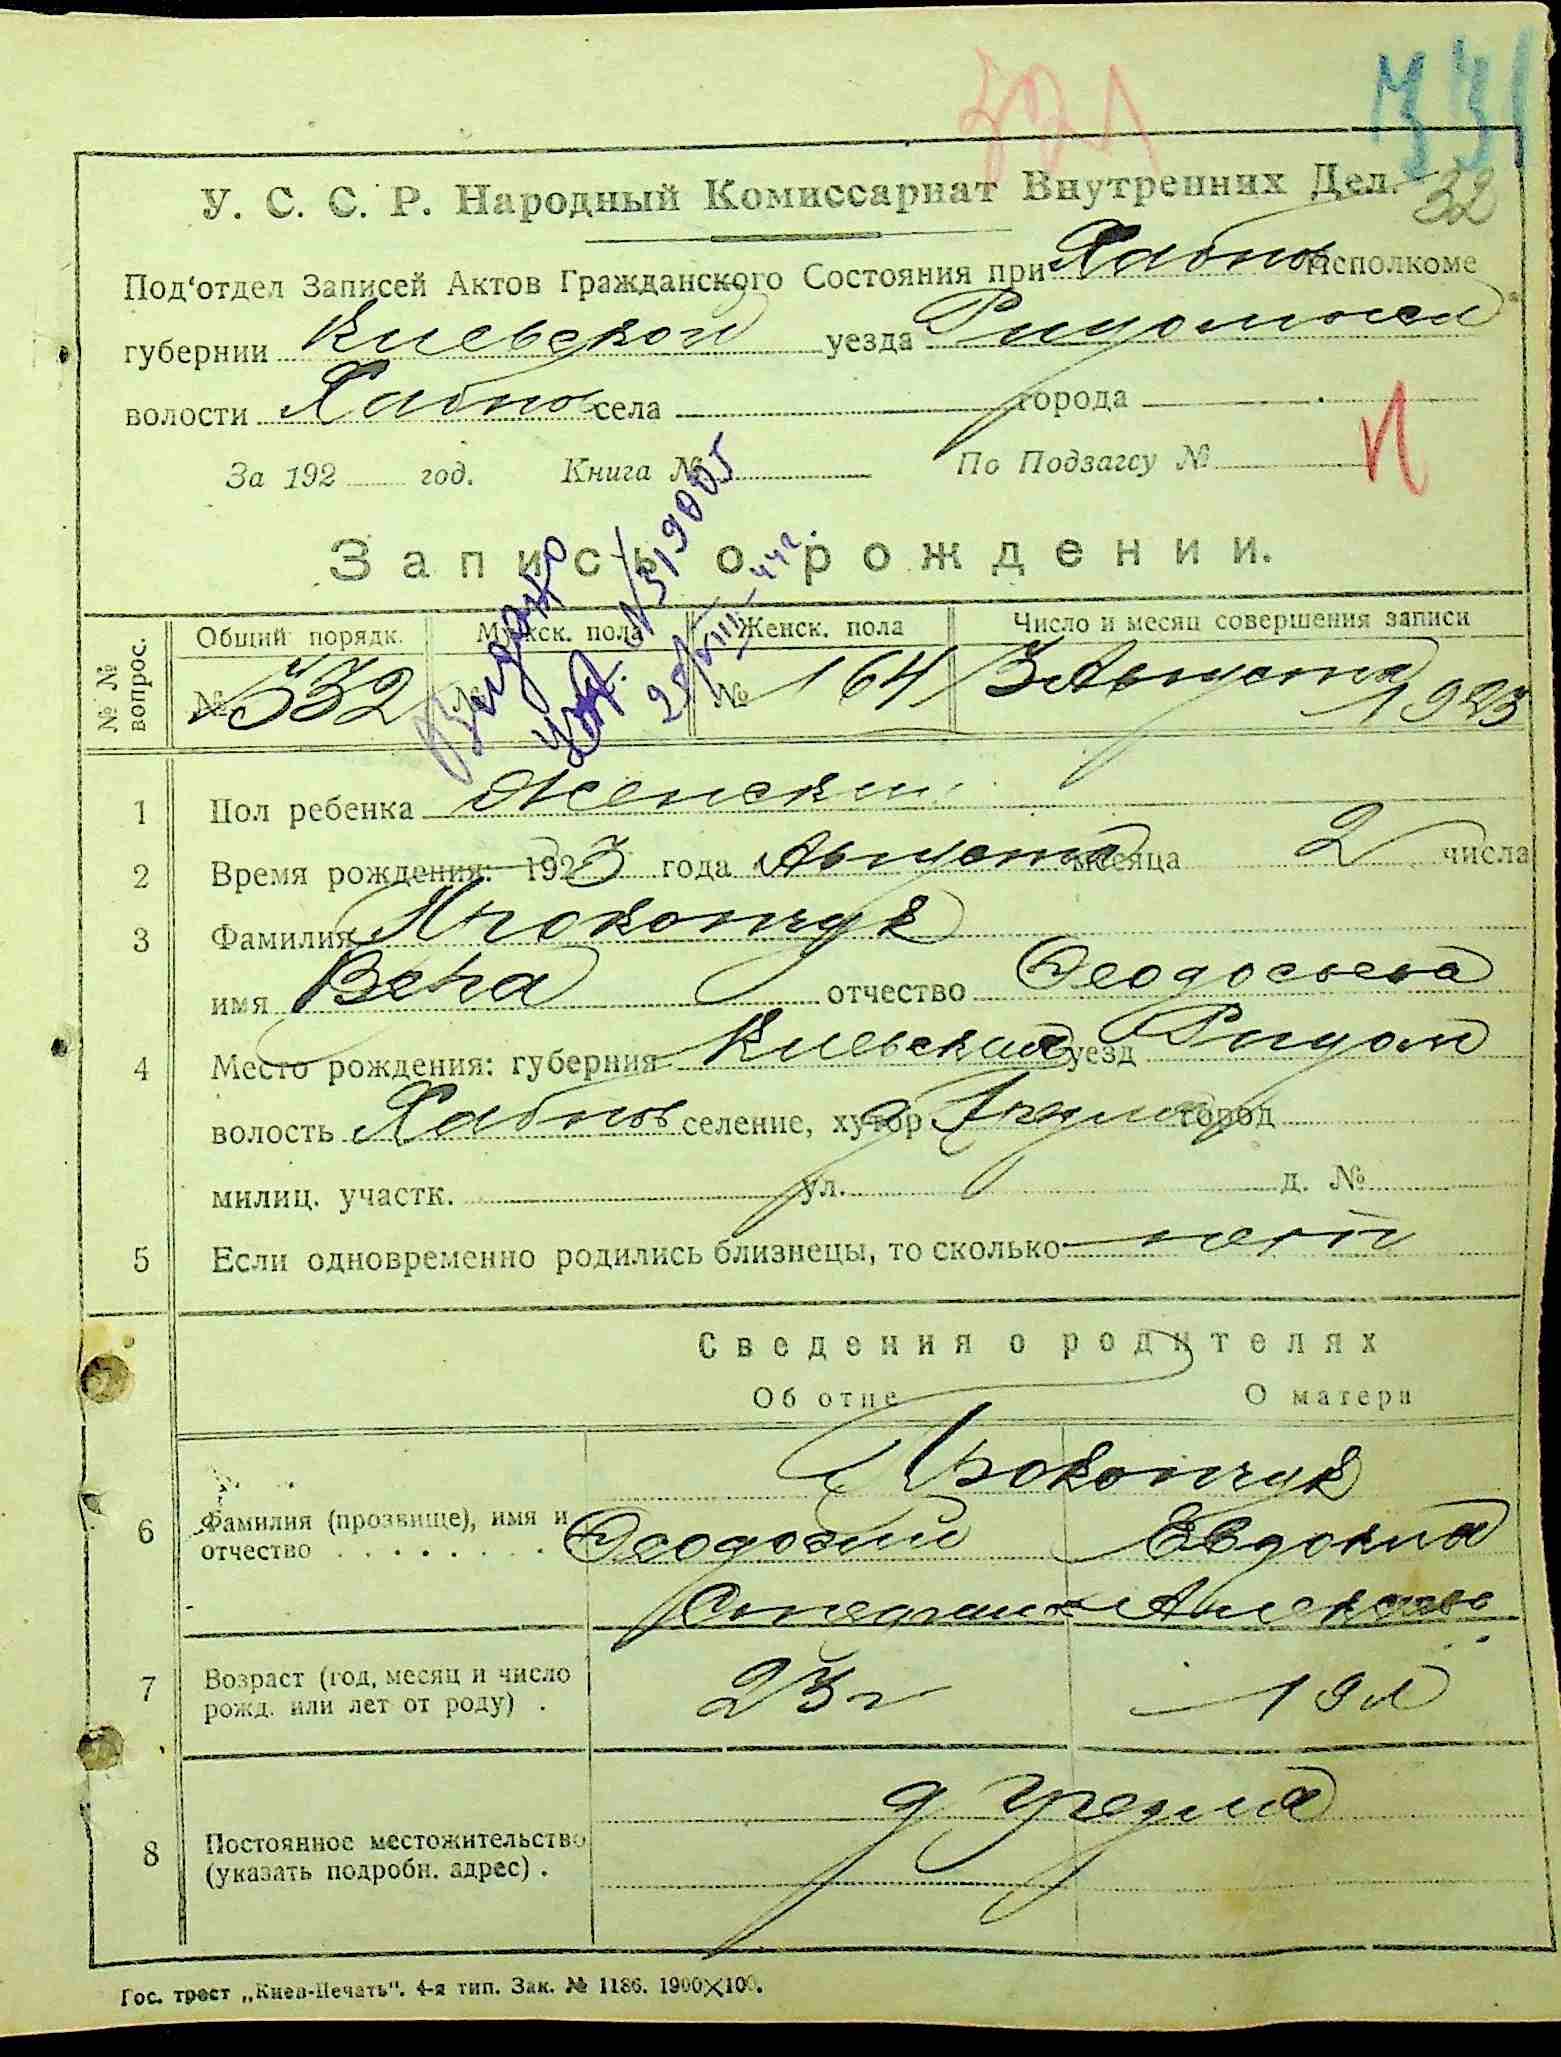 331
32
У. С. С. Р. Народный Комиссариат Внутренних Дел.
Под'отдел Записей Актов Гражданского Состояния при Хабнов Исполкоме
губернии Киевской уезда
волости Хабнов села города
За 192 год. Книга № По Подзагсу №
Запись о рождении.
№№ вопрос. Общий порядк. Мужск. пола Женск. пола Число и месяц совершения записи
№ 332 № № 164 3 Августа 1923
Выдано
25/VIII-44г.
1 Пол ребенка Женский
2 Время рождения: 1923 года Августа месяца 2 числа
3 Фамилия Прокопчук
имя Вера отчество Феодосьева
4 Место рождения: губерния Киевская уезд
волость Хабнов селение, хутор д город
милиц. участк. ул. д. №
5 Если одновременно родились близнецы, то сколько нет
Сведения о родителях
Об отце О матери
Прокопчук
6 Фамилия (прозвище), имя и отчество Феодосий Евдокия
7 Возраст (год, месяц и число рожд. или лет от роду) . 23 г 19 л
8 Постоянное местожительство (указать подробн. адрес) . д
Гос. трест „Киев-Печать". 4-я тип. Зак. № 1186. 1900×100.